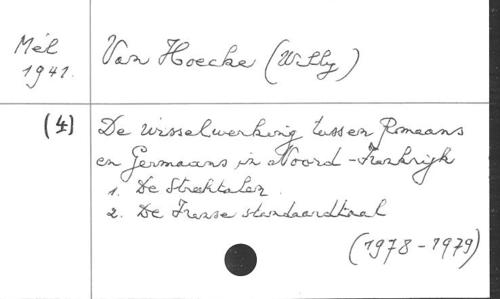 Mél
1941.
Van Hoecke (Willy)
(4)
De wisselwerking tussen Romaans
en Germaans in Noord-Frankrijk
1. De Streektalen.
2. De Franse standaardtaal
(1978-1979)